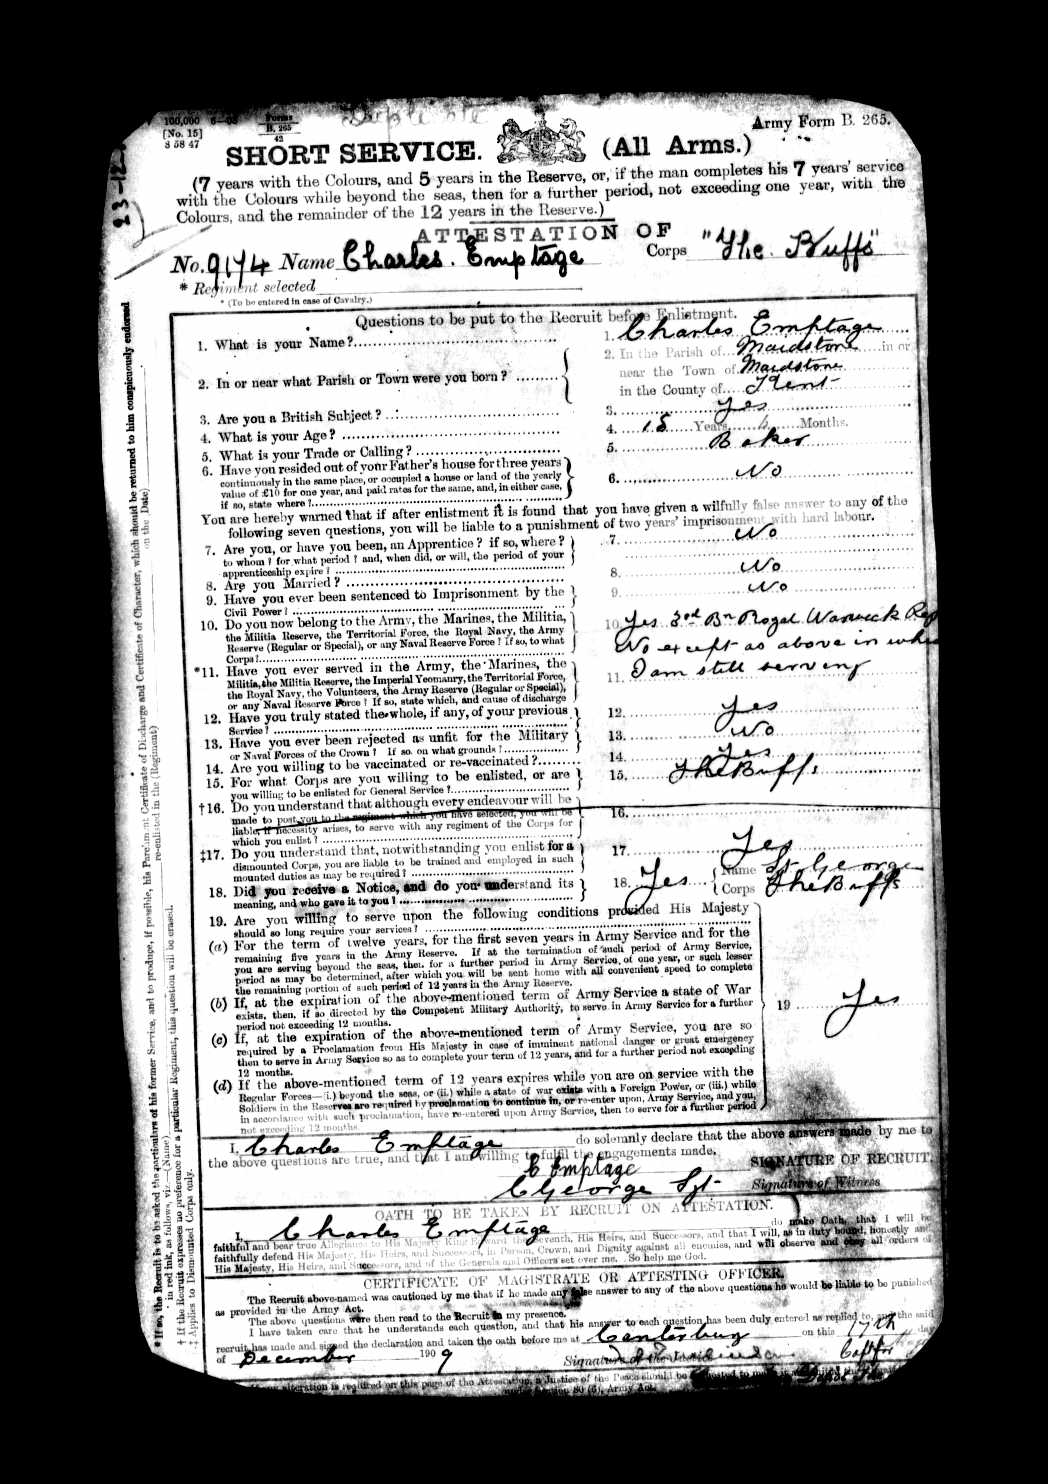 100,000 6—08 Forms
[No. 15] B. 265
S 58 47 42
Army Form B. 265.
SHORT SERVICE. (All Arms.)
(7 years with the Colours, and 5 years in the Reserve, or, if the man completes his 7 years' service
with the Colours while beyond the seas, then for a further period, not exceeding one year, with the
Colours, and the remainder of the 12 years in the Reserve.)
ATTESTATION OF
No. 9174 Name Charles Emptage Corps "The Buffs"
* Regiment selected
* (To be entered in case of Cavalry.)
Questions to be put to the Recruit before Enlistment.
1. What is your Name? 1. Charles Emptage
2. In or near what Parish or Town were you born? 2. In the Parish of Maidstone in or
near the Town of Maidstone
in the County of Kent
3. Are you a British Subject? 3. Yes
4. What is your Age? 4. 18 Years Months.
5. What is your Trade or Calling? 5. Baker
6. Have you resided out of your Father's house for three years
continuously in the same place, or occupied a house or land of the yearly
value of £10 for one year, and paid rates for the same, and, in either case,
if so, state where? 6. No
You are hereby warned that if after enlistment it is found that you have given a wilfully false answer to any of the
following seven questions, you will be liable to a punishment of two years' imprisonment with hard labour.
7. Are you, or have you been, an Apprentice? if so, where? 7. No
to whom? for what period? and, when did, or will, the period of your
apprenticeship expire?
8. Are you Married? 8. No
9. Have you ever been sentenced to Imprisonment by the 9. No
Civil Power?
10. Do you now belong to the Army, the Marines, the Militia, 10. Yes 3rd Bn Royal Warwick Reg
the Militia Reserve, the Territorial Force, the Royal Navy, the Army
Reserve (Regular or Special), or any Naval Reserve Force? If so, to what
Corps?
*11. Have you ever served in the Army, the Marines, the 11. No except as above in which
Militia, the Militia Reserve, the Imperial Yeomanry, the Territorial Force, I am still serving
the Royal Navy, the Volunteers, the Army Reserve (Regular or Special),
or any Naval Reserve Force? If so, state which, and cause of discharge
12. Have you truly stated the whole, if any, of your previous 12. Yes
Service?
13. Have you ever been rejected as unfit for the Military 13. No
or Naval Forces of the Crown? If so, on what grounds?
14. Are you willing to be vaccinated or re-vaccinated? 14. Yes
15. For what Corps are you willing to be enlisted, or are 15. The Buffs
you willing to be enlisted for General Service?
†16. Do you understand that although every endeavour will be 16.
made to post you to the regiment which you have selected, you will be
liable, if necessity arises, to serve with any regiment of the Corps for
which you enlist?
‡17. Do you understand that, notwithstanding you enlist for a 17. Yes
dismounted Corps, you are liable to be trained and employed in such
mounted duties as may be required?
18. Did you receive a Notice, and do you understand its 18. Yes Name Sgt George
meaning, and who gave it to you? Corps The Buffs
19. Are you willing to serve upon the following conditions provided His Majesty
should so long require your services?
(a) For the term of twelve years, for the first seven years in Army Service and for the
remaining five years in the Army Reserve. If at the termination of such period of Army Service,
you are serving beyond the seas, then for a further period in Army Service, of one year, or such lesser
period as may be determined, after which you will be sent home with all convenient speed to complete
the remaining portion of such period of 12 years in the Army Reserve.
(b) If, at the expiration of the above-mentioned term of Army Service a state of War
exists, then, if so directed by the Competent Military Authority, to serve in Army Service for a further
period not exceeding 12 months. 19 Yes
(c) If, at the expiration of the above-mentioned term of Army Service, you are so
required by a Proclamation from His Majesty in case of imminent national danger or great emergency
then to serve in Army Service so as to complete your term of 12 years, and for a further period not exceeding
12 months.
(d) If the above-mentioned term of 12 years expires while you are on service with the
Regular Forces—(i.) beyond the seas, or (ii.) while a state of war exists with a Foreign Power, or (iii.) while
Soldiers in the Reserves are required by proclamation to continue in, or re-enter upon, Army Service, and you,
in accordance with such proclamation, have re-entered upon Army Service, then to serve for a further period
not exceeding 12 months.
I, Charles Emptage do solemnly declare that the above answers made by me to
the above questions are true, and that I am willing to fulfil the engagements made.
C Emptage SIGNATURE OF RECRUIT.
C George Sgt Signature of Witness
OATH TO BE TAKEN BY RECRUIT ON ATTESTATION.
I, Charles Emptage do make Oath, that I will be
faithful and bear true Allegiance to His Majesty King Edward the Seventh, His Heirs, and Successors, and that I will, as in duty bound, honestly and
faithfully defend His Majesty, His Heirs, and Successors, in Person, Crown, and Dignity against all enemies, and will observe and obey all orders of
His Majesty, His Heirs, and Successors, and of the Generals and Officers set over me. So help me God.
CERTIFICATE OF MAGISTRATE OR ATTESTING OFFICER.
The Recruit above-named was cautioned by me that if he made any false answer to any of the above questions he would be liable to be punished
as provided in the Army Act.
The above questions were then read to the Recruit in my presence.
I have taken care that he understands each question, and that his answer to each question has been duly entered as replied to, and the said
recruit has made and signed the declaration and taken the oath before me at Canterbury on this 17th day
of December 1909 Signature
*If so, the Recruit is to be asked the particulars of his former Service, and to produce, if possible, his Parchment Certificate of Discharge and Certificate of Character, which should be returned to him conspicuously endorsed
in red ink, as follows, viz.—(Name) re-enlisted in the (Regiment) on the (Date)
† If the Recruit expresses no preference for a particular Regiment, this question will be erased.
‡ Applies to Dismounted Corps only.